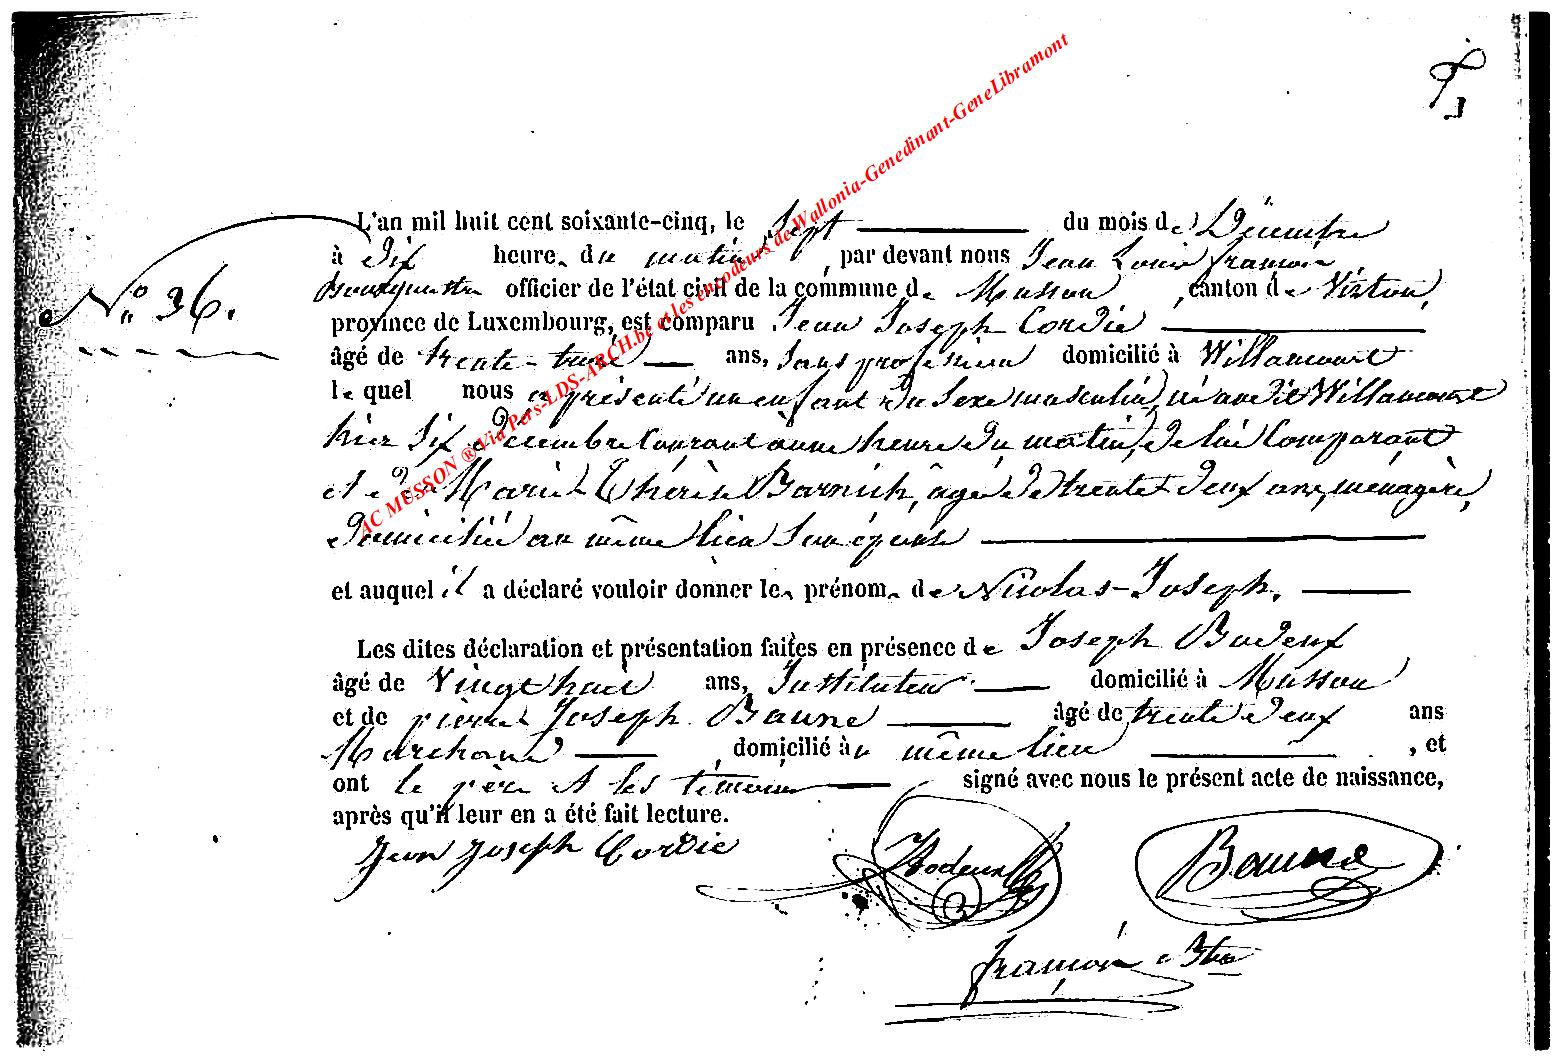 L'an mil huit cent soixante-cinq, le Sept du mois de Décembre
à Dix heure du matin, par devant nous Jean Louis françois
Bourgmestre officier de l'état civil de la commune de Musson, canton de Virton,
N° 36.
province de Luxembourg, est comparu Jean Joseph Cordie
âgé de trente-trois ans, sans profession domicilié à Willancourt
le quel nous a présenté un enfant du sexe masculin, né au dit Willancourt
hier six décembre courant à une heure du matin, de lui comparant
et de Marie Thérèse Barnich, âgée de trente deux ans, ménagère,
domiciliée au même lieu son épouse
et auquel il a déclaré vouloir donner le prénom de Nicolas-Joseph.
Les dites déclaration et présentation faites en présence de Joseph Bodeux
âgé de Vingt huit ans, Instituteur domicilié à Musson
et de pierre Joseph Baune âgé de trente deux ans
Marchand, domicilié au même lieu, et
ont le père et les témoins signé avec nous le présent acte de naissance,
après qu'il leur en a été fait lecture.
Jean Joseph Cordie
Bodeux
Baune
françois Btre
AC MUSSON ® Via Pers-LDS-ARCH.be et les encodeurs de Wallonia-Genedinant-GeneLibramont